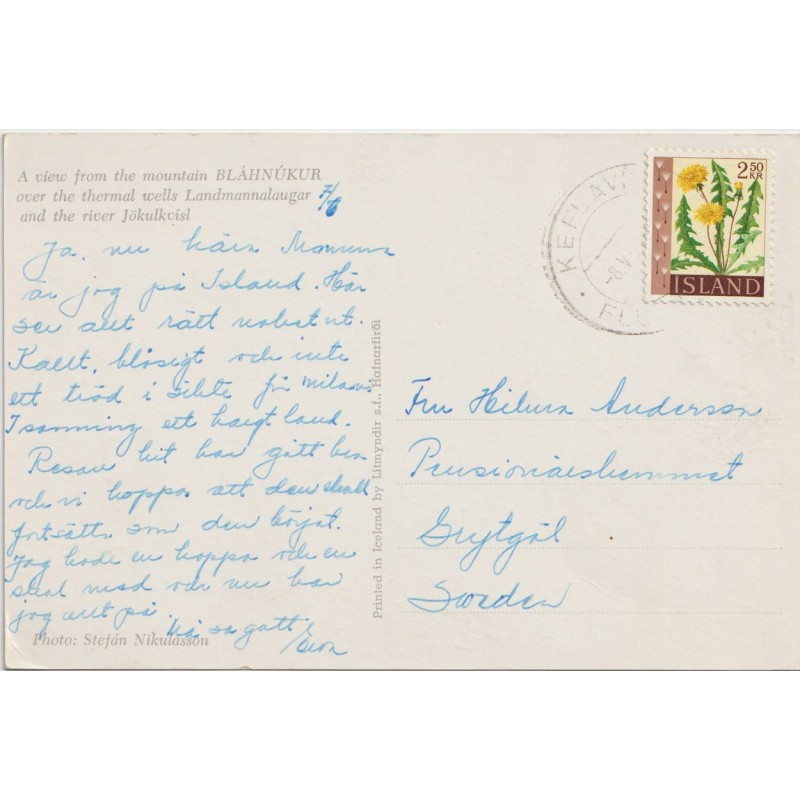 A view from the mountain BLÁHNÚKUR
over the thermal wells Landmannalaugar
and the river Jökulkvísl
7/6
Ja, nu kära Mamma
är jag på Island. Här
ser allt rätt
Kallt, blåsigt och inte
ett träd i sikte för
I sanning ett kargt land.
Resan hit har gått bra
och vi hoppas att den skall
fortsätta som den börjat.
Jag hade en koppa och en
med var nu har
jag allt på.
Må så gott
Photo: Stefán Nikulásson
Printed in Iceland by Litmyndir s.f., Hafnarfirði
KEFLAV
-8.V
FLU
2 50
KR
ISLAND
Fru Hilma Andersson
Pensionärshemmet
Grytgöl
Sweden